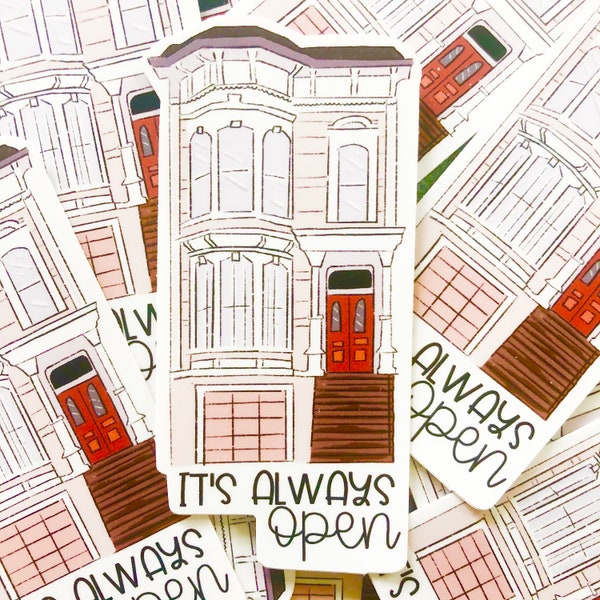 IT'S ALWAYS
open
ALWAYS
open
ALWAYS
open
ALWAYS